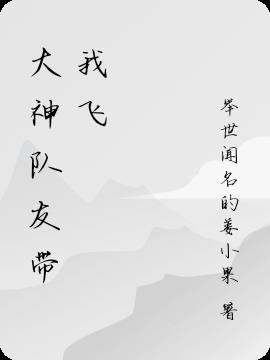 大神队友带
我飞
举世闻名的姜小果 著